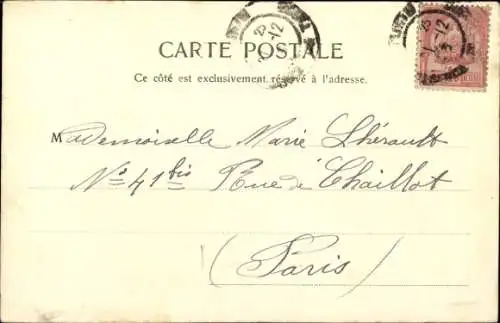 CARTE POSTALE
Ce côté est exclusivement réservé à l'adresse.
Mademoiselle Marie Lhérault
Nº 41 bis Rue de Chaillot
(Paris)